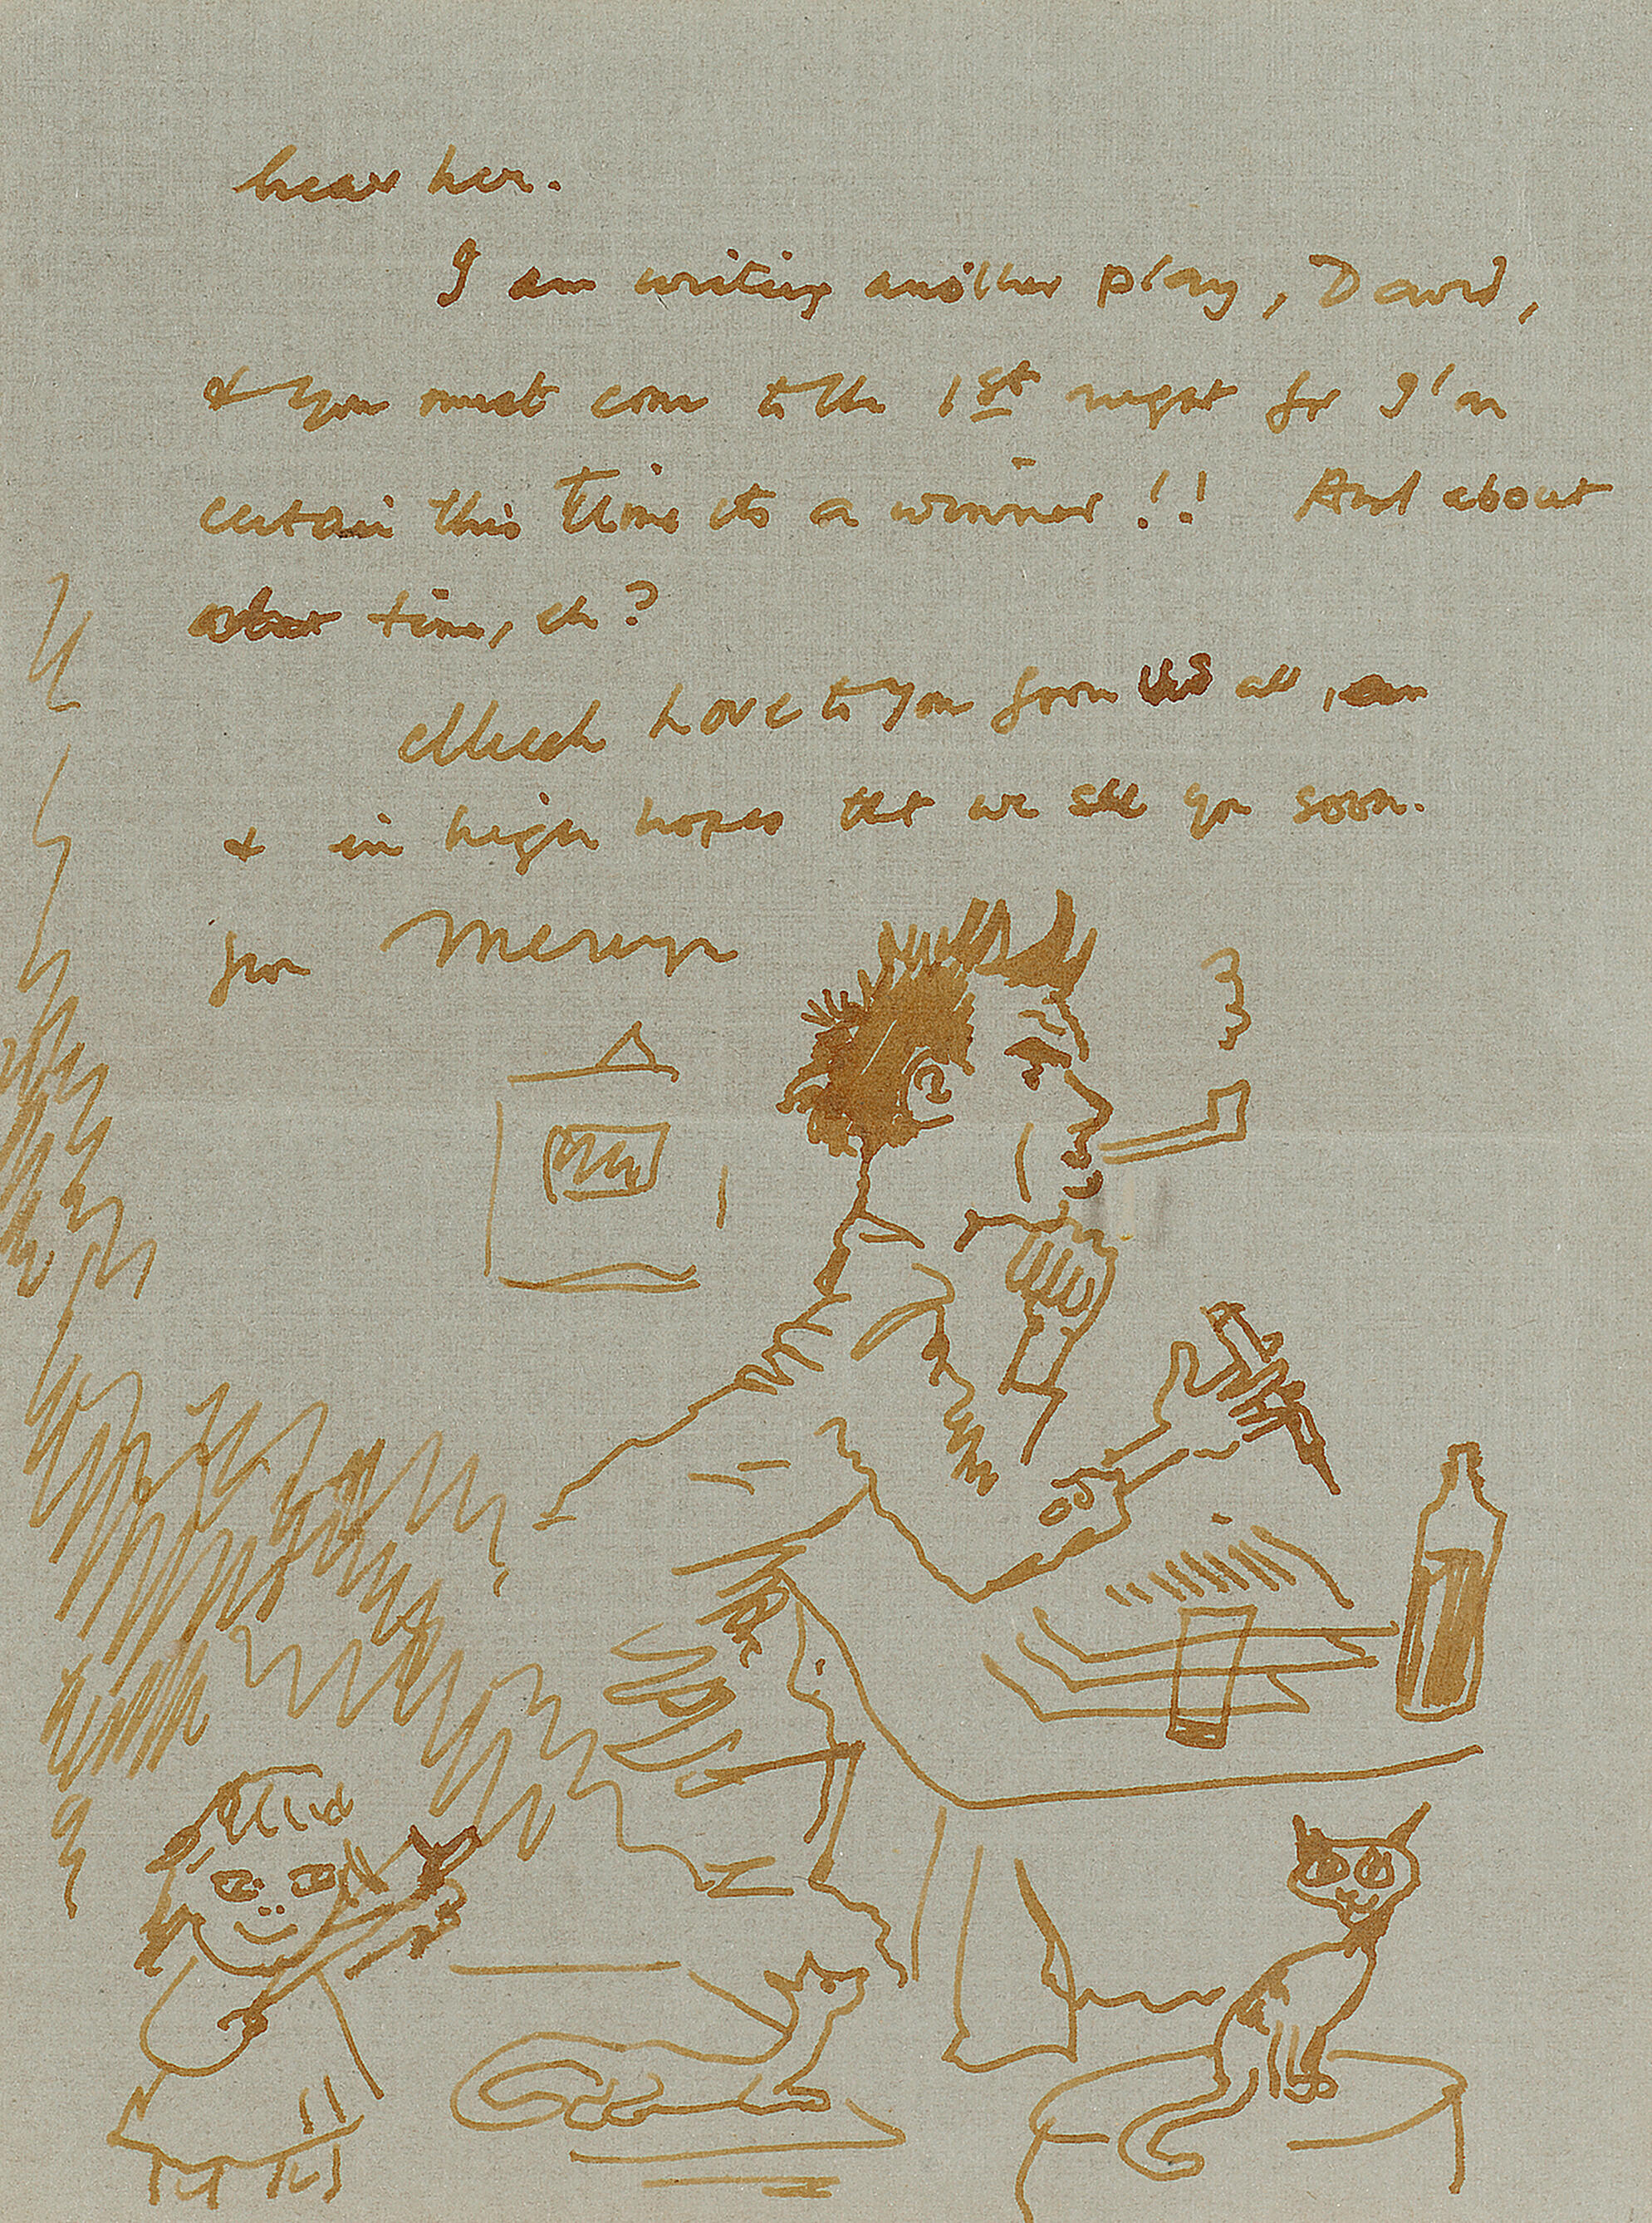 hear her.
I am writing another play, David,
& you must come to the 1st night for I'm
certain this time its a winner!! And about
time, eh?
Much Love to you from us all,
& in high hopes that we see you soon.
from Mervyn